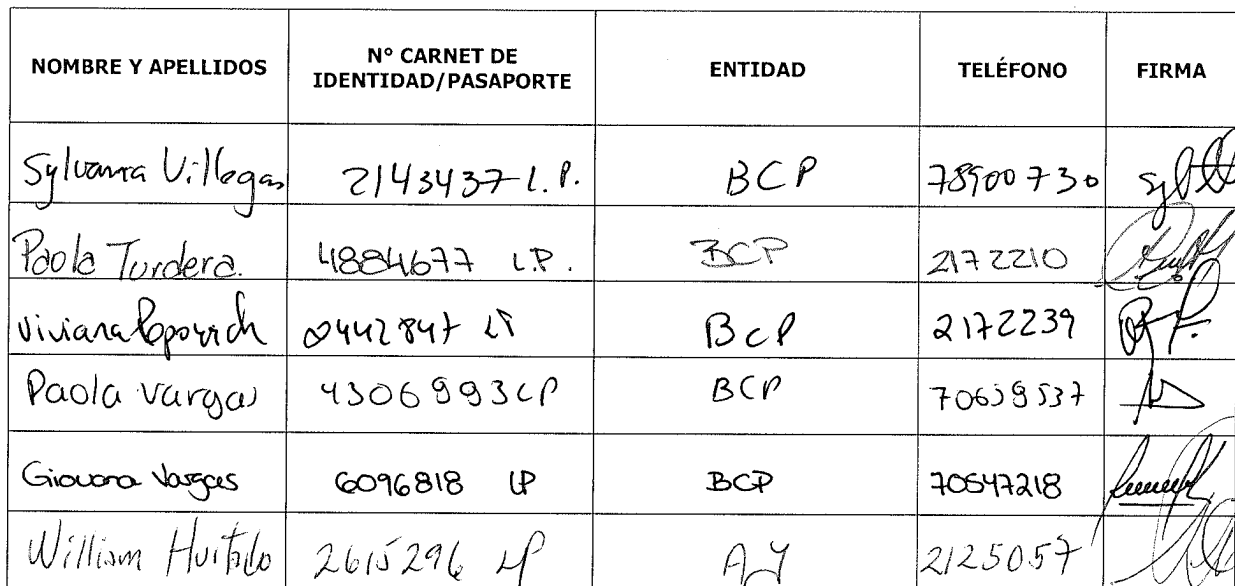 NOMBRE Y APELLIDOS Nº CARNET DE IDENTIDAD/PASAPORTE ENTIDAD TELÉFONO FIRMA
Sylvanna Villegas 2143437 L.P. BCP 78900730
Paola Turdera. 4884677 L.P. BCP 2172210
Viviana Popovich 0442847 LP BCP 2172239
Paola Vargas 4306993 LP BCP
Giovana Vargas 6096818 LP BCP 70547218
William Hurtado 2615296 LP AJ 2125057